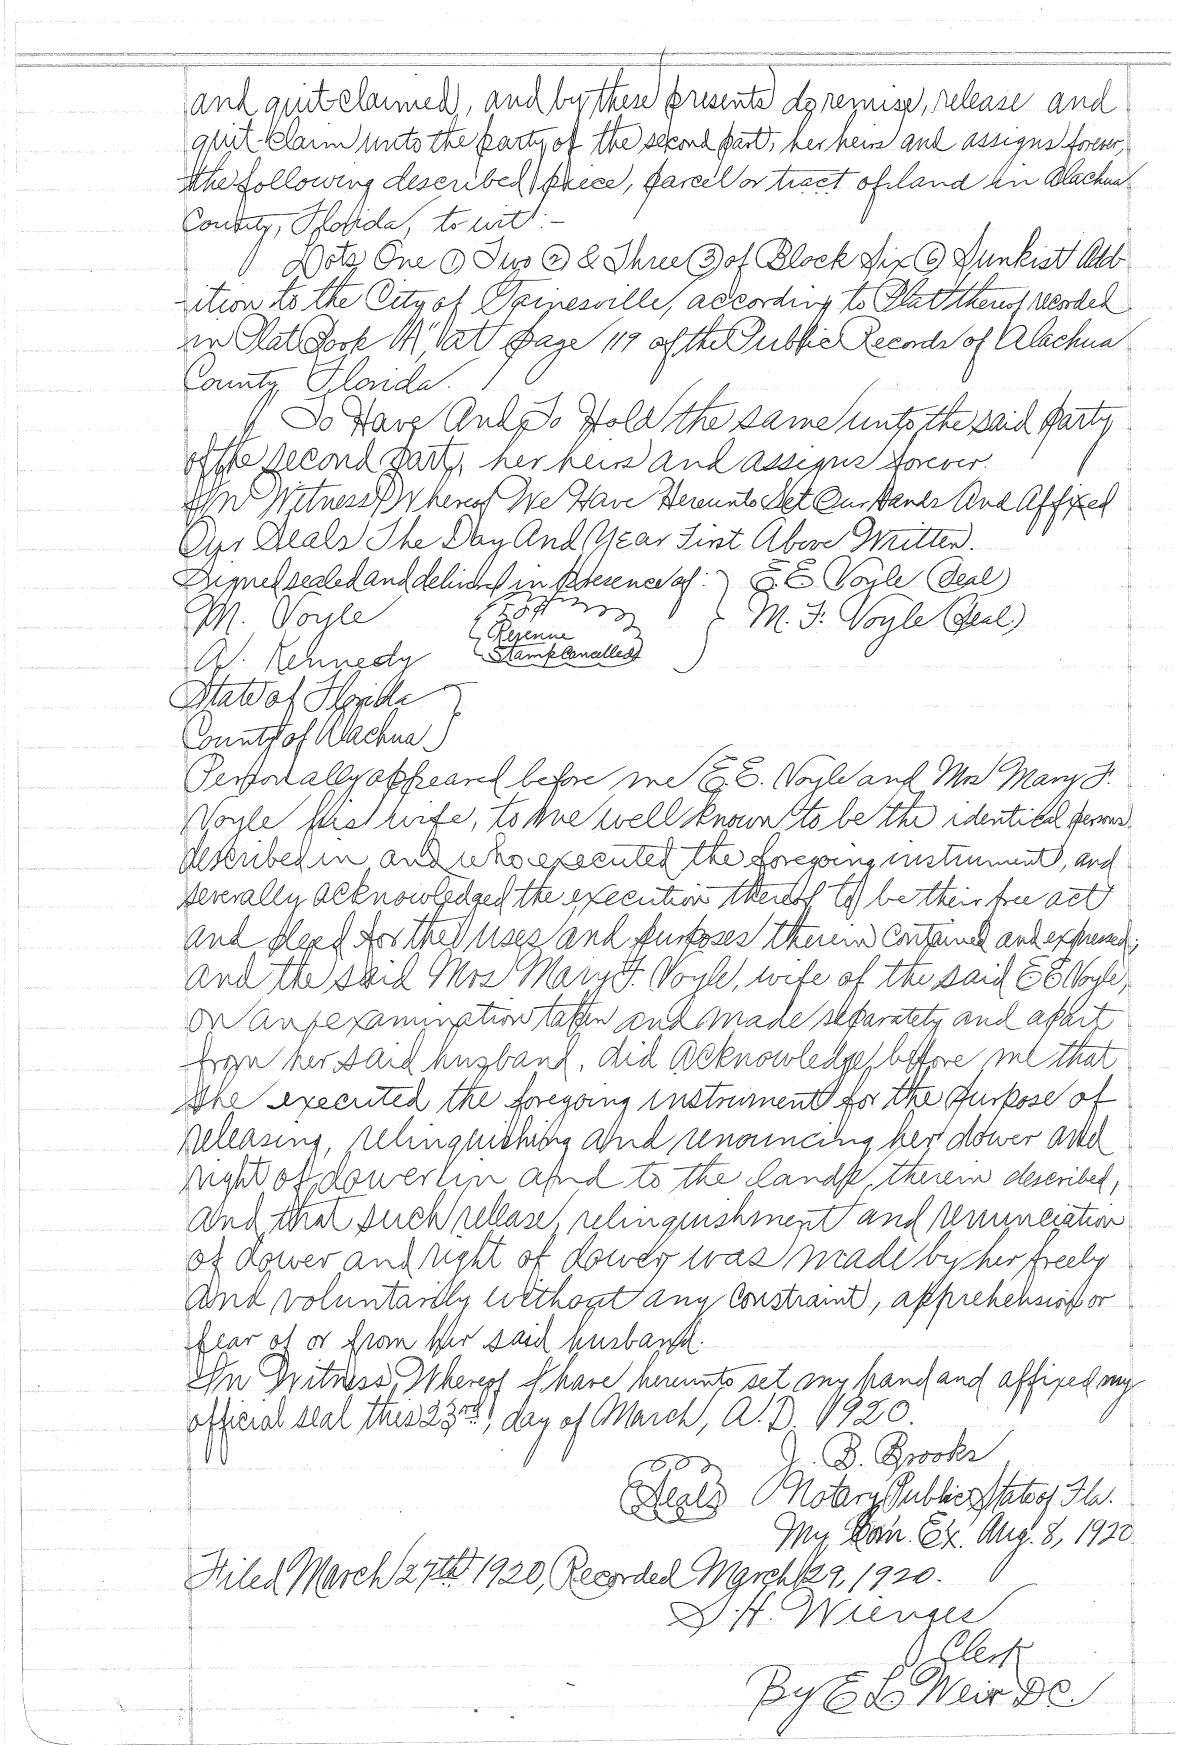 and quit-claimed, and by these presents do remise, release and
quit-claim unto the party of the second part, her heirs and assigns forever,
the following described piece, parcel or tract of land in Alachua
County, Florida, to wit:-
Lots One ① Two ② & Three ③ of Block Six ⑥ Sunkist Add
ition to the City of Gainesville, according to Plat thereof recorded
in Plat Book "A", at page 119 of the Public Records of Alachua
County Florida.
To Have And To Hold the same unto the said party
of the second part, her heirs and assigns forever.
In Witness Whereof We Have Hereunto Set Our Hands And Affixed
Our Seals The Day And Year First Above Written.
Signed sealed and delivered in presence of: E E Voyle (Seal)
M. Voyle M. F. Voyle (Seal)
50¢
Revenue
Stamp Cancelled
A. Kennedy
State of Florida
County of Alachua
Personally appeared before me E. E. Voyle and Mrs Mary F.
Voyle his wife, to me well known to be the identical persons
described in, and who executed the foregoing instrument, and
severally acknowledged the execution thereof to be their free act
and deed for the uses and purposes therein contained and expressed;
and the said Mrs Mary F. Voyle, wife of the said E E Voyle,
on an examination taken and made separately and apart
from her said husband, did acknowledge before me that
she executed the foregoing instrument for the purpose of
releasing, relinquishing and renouncing her dower and
right of dower in and to the lands, therein described,
and that such release, relinquishment and renunciation
of dower and right of dower was made by her freely
and voluntarily without any constraint, apprehension or
fear of or from her said husband.
In Witness Whereof I have hereunto set my hand and affixed my
official seal this 23rd, day of March, A.D. 1920.
J. B. Brooks
(Seal) Notary Public State of Fla.
My Com. Ex. Aug. 8, 1920
Filed March 27th 1920, Recorded March 29, 1920.
S. H. Wienges
Clerk
By E L Weir D C.